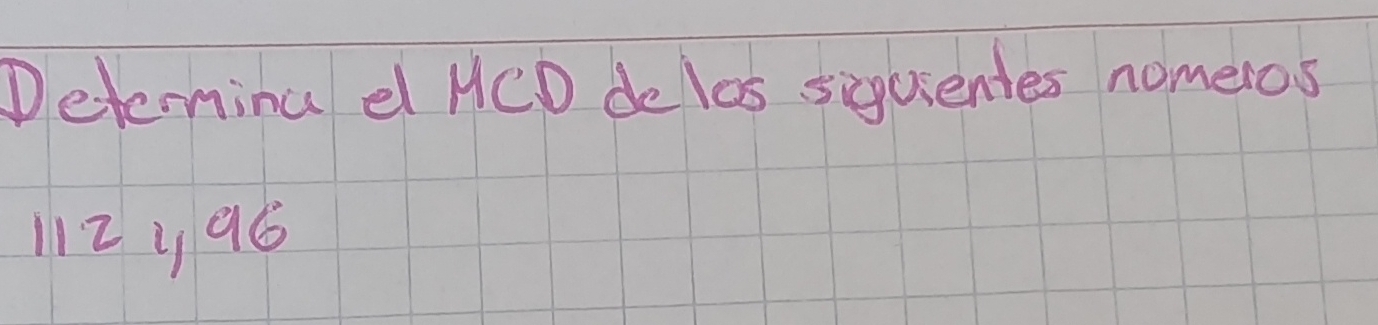 Determina el MCD de los siguientes nomeros
112 y 96